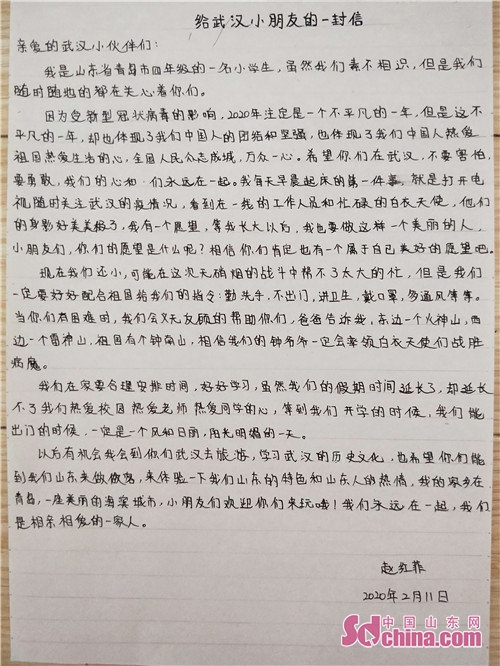 给武汉小朋友的一封信
亲爱的武汉小伙伴们：
我是山东省青岛市四年级的一名小学生，虽然我们素不相识，但是我们
随时随地的都在关心着你们。
因为受新型冠状病毒的影响，2020年注定是一个不平凡的一年，但是这不
平凡的一年，却也体现了我们中国人的团结和坚强，也体现了我们中国人热爱
祖国热爱生活的心，全国人民众志成城，万众一心。希望你们在武汉，不要害怕，
要勇敢，我们的心和 们永远在一起。我每天早晨起床的第一件事，就是打开电
视随时关注武汉的疫情情况，看到在一线的工作人员和忙碌的白衣天使，他们
的身影好美美极了，我有一个愿望，等我长大以后，我也要做这样一个美丽的人，
小朋友们，你们的愿望是什么呢？相信你们肯定也有一个属于自己美好的愿望吧。
现在我们还小，可能在这次无硝烟的战斗中帮不了太大的忙，但是我们
一定要好好配合祖国给我们的指令：勤洗手，不出门，讲卫生，戴口罩，多通风等等。
当你们有困难时，我们会义无反顾的帮助你们，爸爸告诉我，东边一个火神山，西
边一个雷神山，祖国有个钟南山，相信我们的钟爷爷一定会率领白衣天使们战胜
病魔。
我们在家要合理安排时间，好好学习，虽然我们的假期时间延长了，却延长
不了我们热爱校园热爱老师热爱同学的心，等到我们开学的时候，我们能
出门的时候，一定是一个风和日丽，阳光明媚的一天。
以后有机会我会到你们武汉去旅游，学习武汉的历史文化，也希望你们能
到我们山东来做做客，来体验一下我们山东的特色和山东人的热情，我的家乡在
青岛，一座美丽的海滨城市，小朋友们欢迎你们来玩哦！我们永远在一起，我们
是相亲相爱的一家人。
赵 菲
2020年2月11日
中国山东网
Sdchina.com